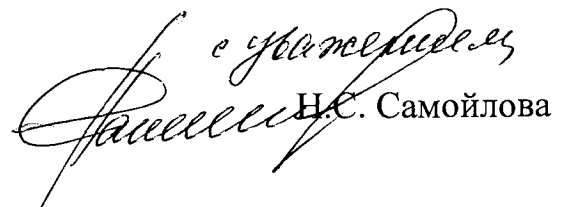 с уважением
Н.С. Самойлова